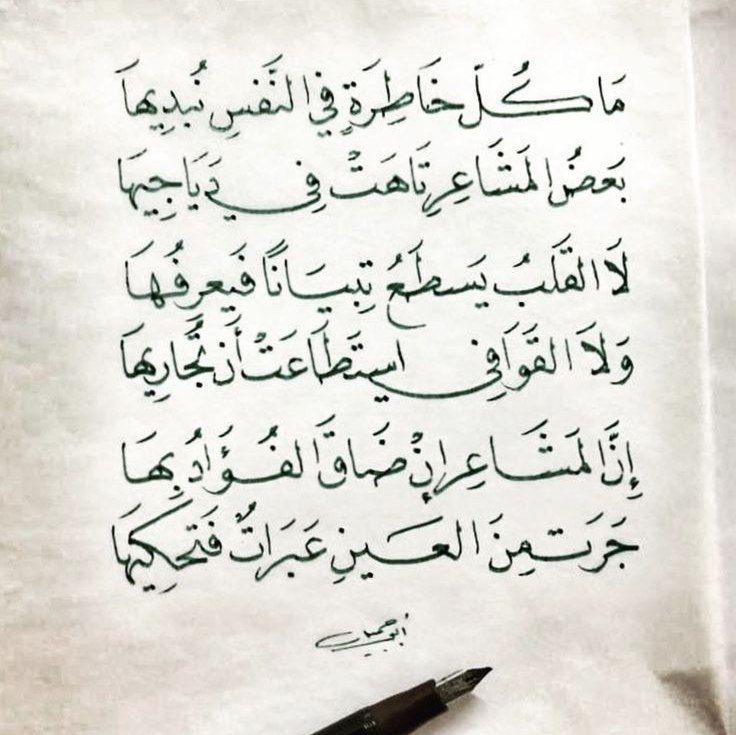 مَا كُلّ خَاطِرَةٍ فِي النَّفسِ نُبدِيهَا
بَعَضُ المَشَاعِرِ تَاهَتْ فِي دَيَاجِيهَا
لَا القَلبُ يَسطَعُ تِبيَانًا فَيَعرِفُهَا
وَلَا القَوَافِي استَطَاعَتْ أَن تُّجَارِيهَا
إِنَّ المَشَاعِر إِنْ ضَاقَ الفُؤَادُ بِهَا
جَرَت مِنَ العَينِ عَبَرَاتٌ فَتَحكِيهَا